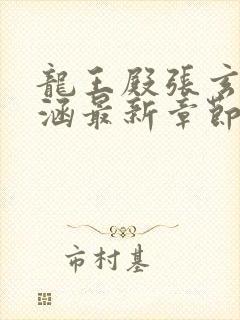 龍王殿張玄
涵最新章節
市村基